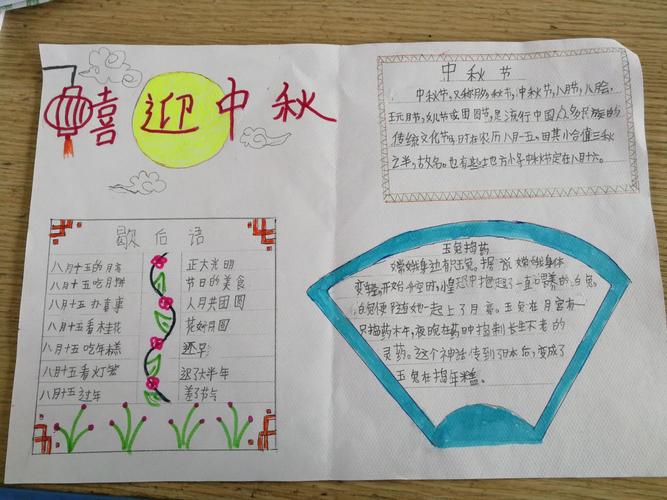 喜迎中秋
中秋节
中秋节,又称月夕,秋节,仲秋节,八月节,八月会,
玩月节,女儿节或团圆节,是流行中国众多民族的
传统文化节,时在农历八月十五。因其恰值三秋
之半,故名。也有些地方将中秋节定在八月十六。
歇后语
八月十五的月亮 正大光明
八月十五吃月饼 节日的美食
八月十五办喜事 人月共团圆
八月十五看桂花 花好月圆
八月十五吃年糕 还早
八月十五看灯笼 迟了大半年
八月十五过年 差了节气
玉兔捣药
嫦娥身边有玉兔。据说嫦娥身体
变轻,开始升空时,惶恐中抱起了一直喂养的白兔。
白兔便随她一起上了月亮。玉兔在月宫有一
只捣药杵,夜晚在药中捣制长生不老的
灵药。这个神话传到日本后,变成了
玉兔在捣年糕。